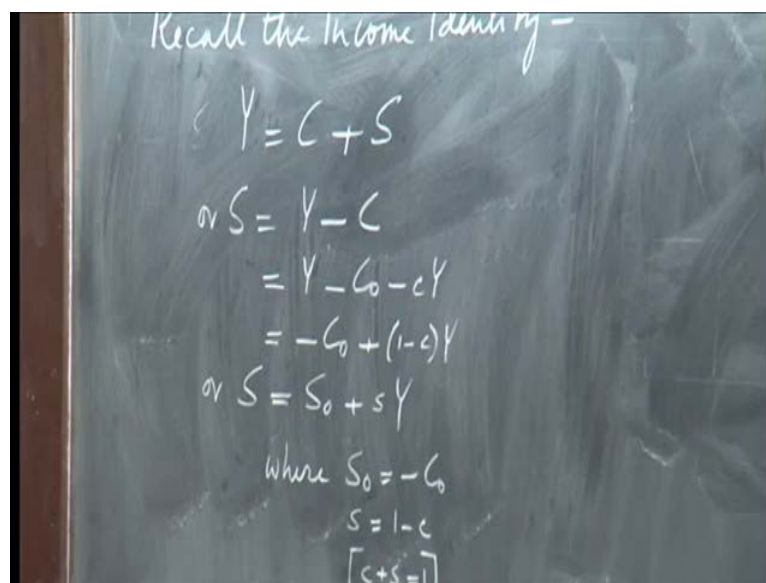 Recall the Income Identity -
Y = C + S
or S = Y - C
= Y - C₀ - cY
= - C₀ + (1-c)Y
or S = S₀ + sY
where S₀ = - C₀
s = 1-c
[c+s=1]